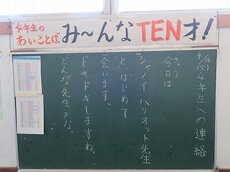 4年生の
あいことば
み〜んなTENオ!
4年生への連絡
きょう
今日は
シャノイ ハリオット先生
と、はじめて
会います!
ドキドキしますね。
どんな先生かな?